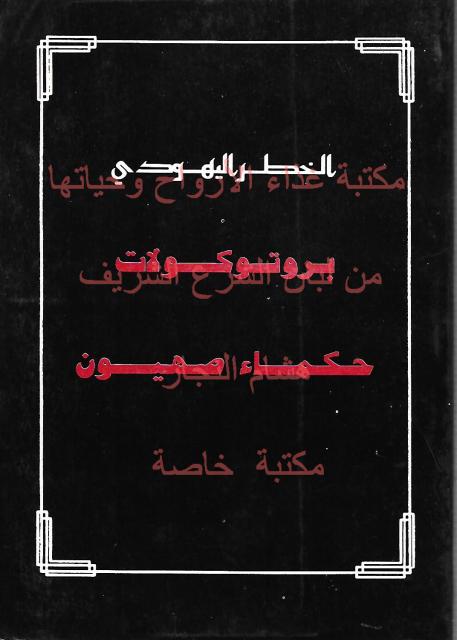 الخطر اليهودي
مكتبة غذاء الارواح وحياتها
بروتوكولات
من لبان الشرع الشريف
حكماء صهيون
هشام النجار
مكتبة خاصة